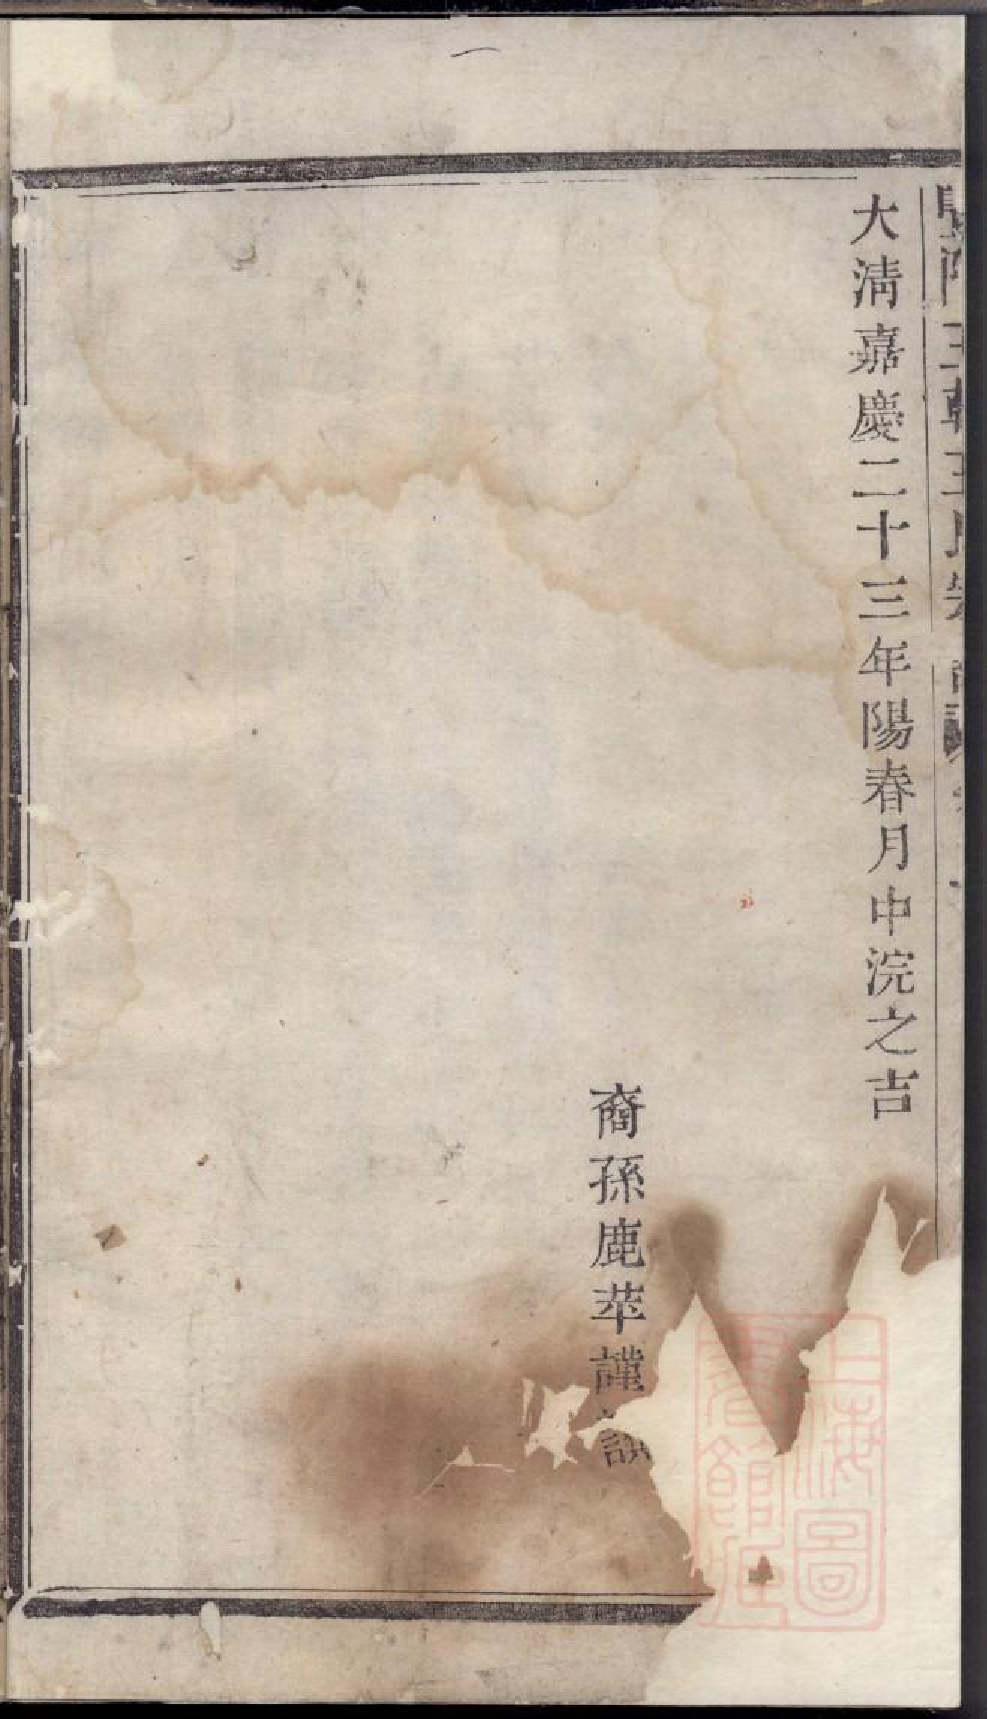 大淸嘉慶二十三年陽春月中浣之吉
裔孫鹿苹謹識
上海圖
書館藏